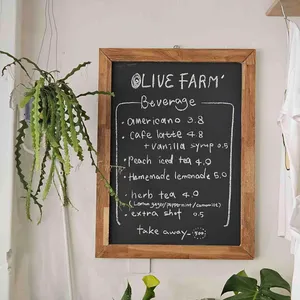 OLIVE FARM'
Beverage
• americano 3.8
• cafe latte 4.8
+ vanilla syrup 0.5
• peach iced tea 4.0
• Homemade lemonade 5.0
• herb tea 4.0
(Lemongrass/peppermint/camomile)
• extra shot 0.5
take away -500